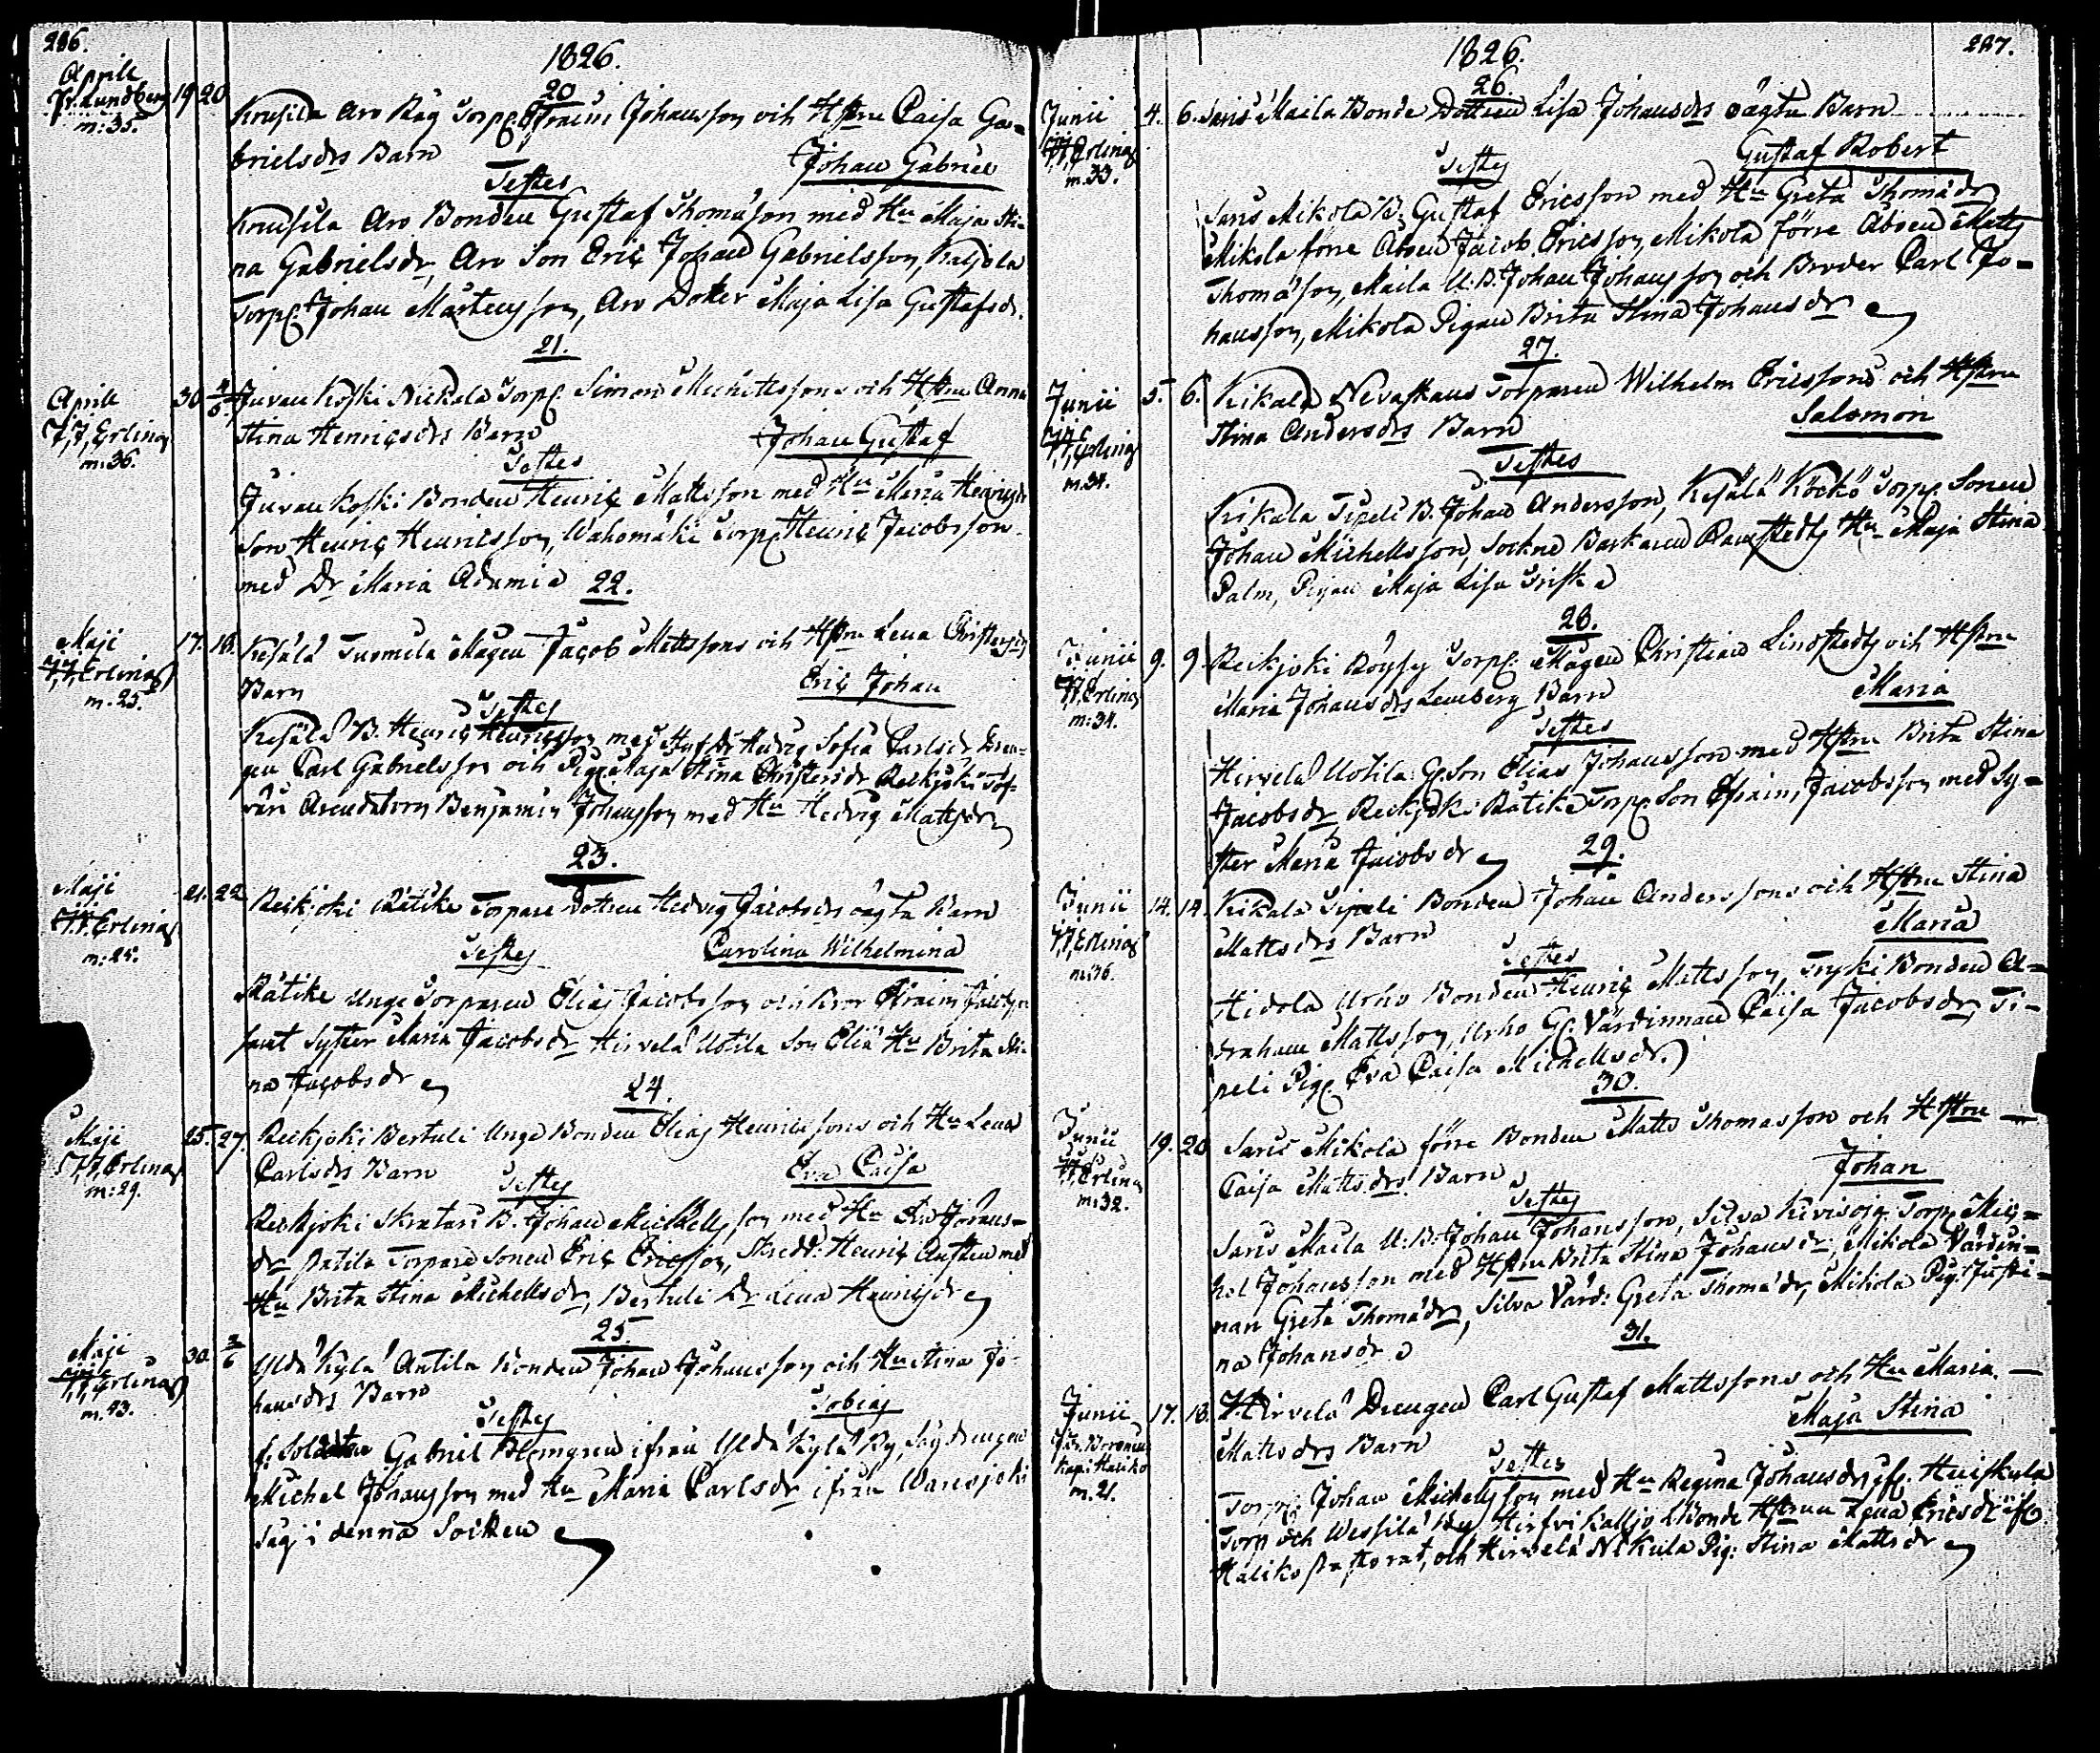 286.
1826.
Aprill
Fr. Lundberg
m: 35.
19 20
20
Knusila Aro Räg Torp. Efraim Johansson och Hstru Caisa Ga=
brielsdrs Barn
Johan Gabriel
Testes
Knusila Aro Bonden Gustaf Thomason med Hu Maja Sti=
na Gabrielsdr, Aro Son Eric Johan Gabrielsson, Kaljola
Torp. Johan Mårtensson, Aro Doter Maja Lisa Gustafsdr.
21.
Aprill
J,J,Erling
m.36.
30 4/5
Juvankoski Nickala Torp. Simon Michelssons och Hstru Anna
Stina Henricsdrs Barn
Johan Gustaf
Testes
Juvankoski Bonden Henric Mattsson med Hu Maria Henricsdr
Son Henric Henricsson, Wahomäki Torp. Henric Jacobsson
med Dr Maria Adamia
22.
Maji
J,J,Erling
m. 25.
17. 18.
Kesälä Tuomila Mågen Jacob Mattssons och Hstru Lena Christersdrs
Barn
Eric Johan
Testes
Kesälä B. Henric Henricsson med Hedvig Sofia Carlsdr Dren=
gen Carl Gabrielsson och Pig. Maja Stina Christersdr Reikjoki
Benjamin Johansson med Hu Hedvig Mattsdr
23.
Maji
J.J.Erling
m: 25.
21. 22
Reikjoki Rätike Torpare Dottren Hedvig Jacobsdrs oägta Barn
Testes
Carolina Wilhelmina
Rätike Unge Torparen Elias Jacobsson och Bror Efraim Jacobsson
samt Syster Maria Jacobsdr Hirvelä Uotila Son Elia Hu Brita Sti=
na Jacobsdr
24.
Maji
J,J,Erling
m: 29.
25. 27.
Reikjoki Bertuli Unge Bonden Elias Henricssons och Hu Lena
Carlsdrs Barn
Eva Caisa
Testes
Reikjoki Skratari B. Johan Michellsson med Hu Johans=
dr Torpare Sonen Eric Ericsson, Skredd: Henric med
Hu Brita Stina Michellsdr, Bertuli Dr Lena Henricsdr
25.
Maji
J,J,Erling
m. 43.
30. 2/6
Yldä Kylä Antila Bonden Johan Johansson och Hu Stina Jo=
hansdrs Barn
Tobias
Testes
f: Soldaten Gabriel Blomgren ifrån Yldä Kylä By, Sågdrengen
Michel Johansson med Hu Maria Carlsdr ifrån Waresjoki
Såg i denna Socken
287.
1826.
26.
Junii
J,J,Erling
m. 33.
4. 6.
Saris Maila Bonde Dottren Lisa Johansdrs oägta Barn
Gustaf Robert
Testes
Saris Mikola B. Gustaf Ericsson med Hu Greta Thomadr
Mikola förre Åboen Jacob Ericsson, Mikola förre Åboen Matts
Thomason, Maila U.B. Johan Johansson och Broder Carl Jo=
hansson, Mikola Pigan Brita Stina Johansdr
27.
Junii
J,J,Erling
m.34.
5. 6.
Kikala Nevaskans Torparen Wilhelm Ericssons och Hstru
Stina Andersdrs Barn
Salomon
Testes
Kikala Tipeli B. Johan Andersson, Kesälä Köckö Torp. Sonen
Johan Michellsson, Sockne Hu Maja Stina
Palm, Pigan Maja Lisa
28.
Junii
J,J,Erling
m: 34.
9. 9
Reikjoki Torp. Mågen Christian Lindstedts och Hstru
Maria Johansdrs Lemberg Barn
Maria
Testes
Hirvelä Uotila G. Son Elias Johansson med Hstru Brita Stina
Jacobsdr Reikjoki Rätike Torp. Son Efraim Jacobsson med Sy=
ster Maria Jacobsdr
29.
Junii
J,J,Erling
m: 36.
14. 14.
Kikala Tipeli Bonden Johan Anderssons och Hstru Stina
Mattsdrs Barn
Maria
Testes
Hidola Urho Bonden Henric Mattsson, Tryki Bonden A=
braham Mattsson, Urho G. Värdinnan Caisa Jacobsdr, Ti=
peli Pig. Eva Caisa Michellsdr.
30.
Junii
J,J,Erling
m: 32.
19. 20
Saris Mikola förre Bonden Matts Thomasson och Hstru
Caisa Mattsdrs Barn
Johan
Testes
Saris Maila U: B: Johan Johansson, Silva Torp. Mic=
hel Johansson med Hstru Brita Stina Johansdr, Mikola Värdin=
nan Greta Thomadr, Silva Värd: Greta Thomadr, Mikola Pig. Justi=
na Johansdr
31.
Junii
Kap: Haliko
m. 21.
17. 18.
Hirvelä Drengen Carl Gustaf Mattssons och Hu Maria
Mattsdrs Barn
Maja Stina
Testes
Torp: Johan Michellsson med Hu Regina Johansdr ifr. Huiskula
Torp och Wessilä By Bonde Hstrun Lena Ericsdr ifr.
Haliko Pastorat, och Hirvelä Nikula Pig: Stina Mattsdr